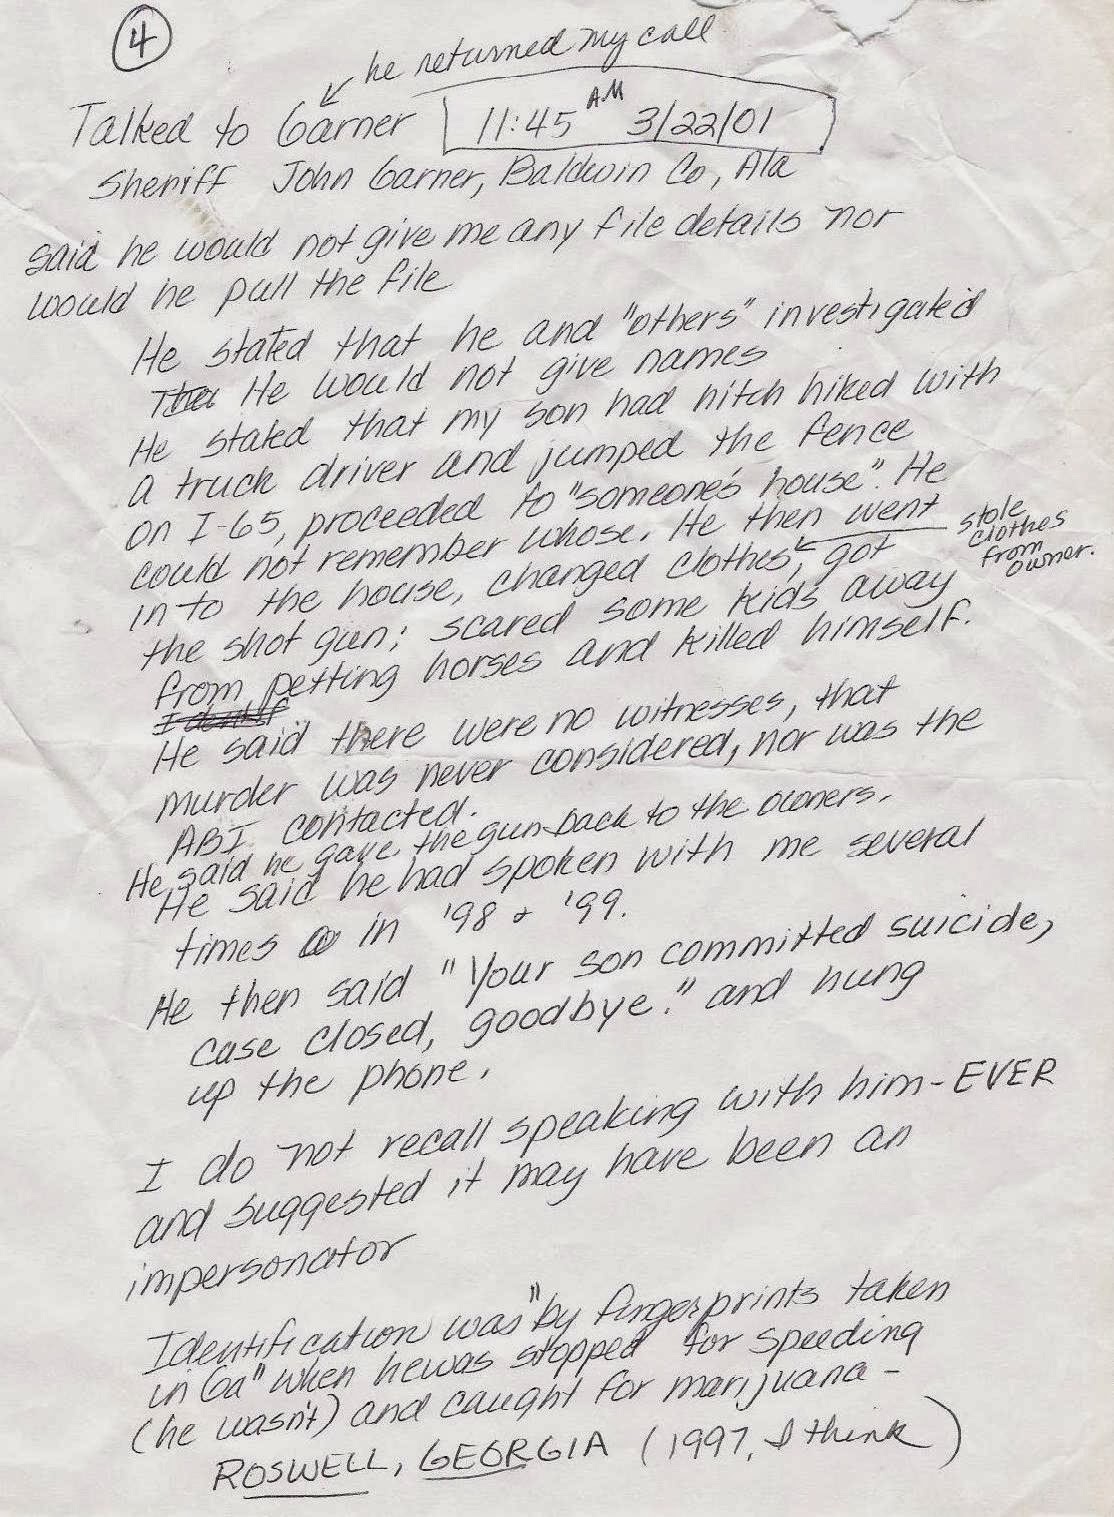 4
he returned my call
Talked to Garner 11:45 AM 3/22/01
Sheriff John Garner, Baldwin Co, Ala
said he would not give me any file details nor
would he pull the file
He stated that he and "others" investigated
He would not give names
He stated that my son had hitch hiked with
a truck driver and jumped the fence
on I-65, proceeded to "someone's house". He
could not remember whose. He then went
in to the house, changed clothes, got
stole
clothes
from
owner.
the shot gun; scared some kids away
from petting horses and killed himself.
He said there were no witnesses, that
murder was never considered, nor was the
ABI contacted.
He said he gave the gun back to the owners.
He said he had spoken with me several
times in '98 & '99.
He then said "Your son committed suicide,
case closed, goodbye." and hung
up the phone.
I do not recall speaking with him - EVER
and suggested it may have been an
impersonator
Identification was "by fingerprints taken
in Ga" when he was stopped for speeding
(he wasn't) and caught for marijuana -
ROSWELL, GEORGIA (1997, I think)